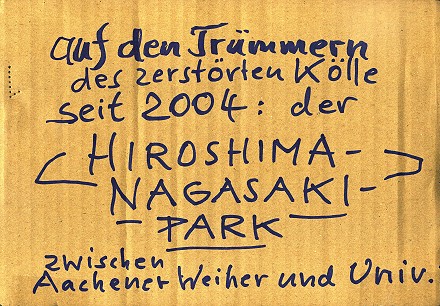 auf den Trümmern
des zerstörten Kölle
seit 2004: der
HIROSHIMA-
NAGASAKI-
PARK
zwischen
Aachener Weiher und Univ.